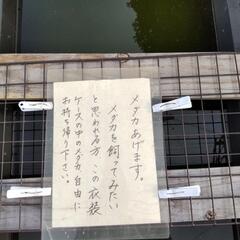 メダカあげます。
メダカを飼ってみたい
と思われる方、この衣装
ケースの中のメダカ、自由に
お持ち帰り下さい。